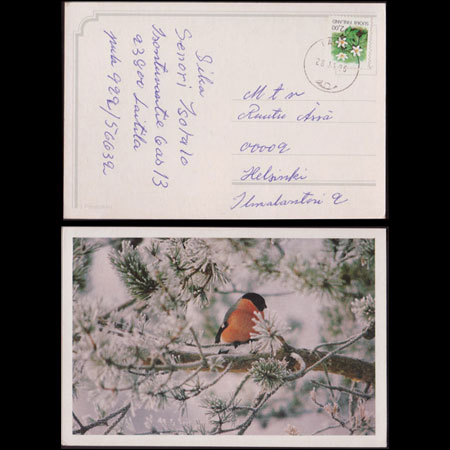 Sika
Senori Isotalo
Isontuvantie 6 as 13
23800 Laitila
puh 922/56639
SUOMI FINLAND
2,00
M t v
Ruutu Ässä
00002
Helsinki
Ilmalantori 2